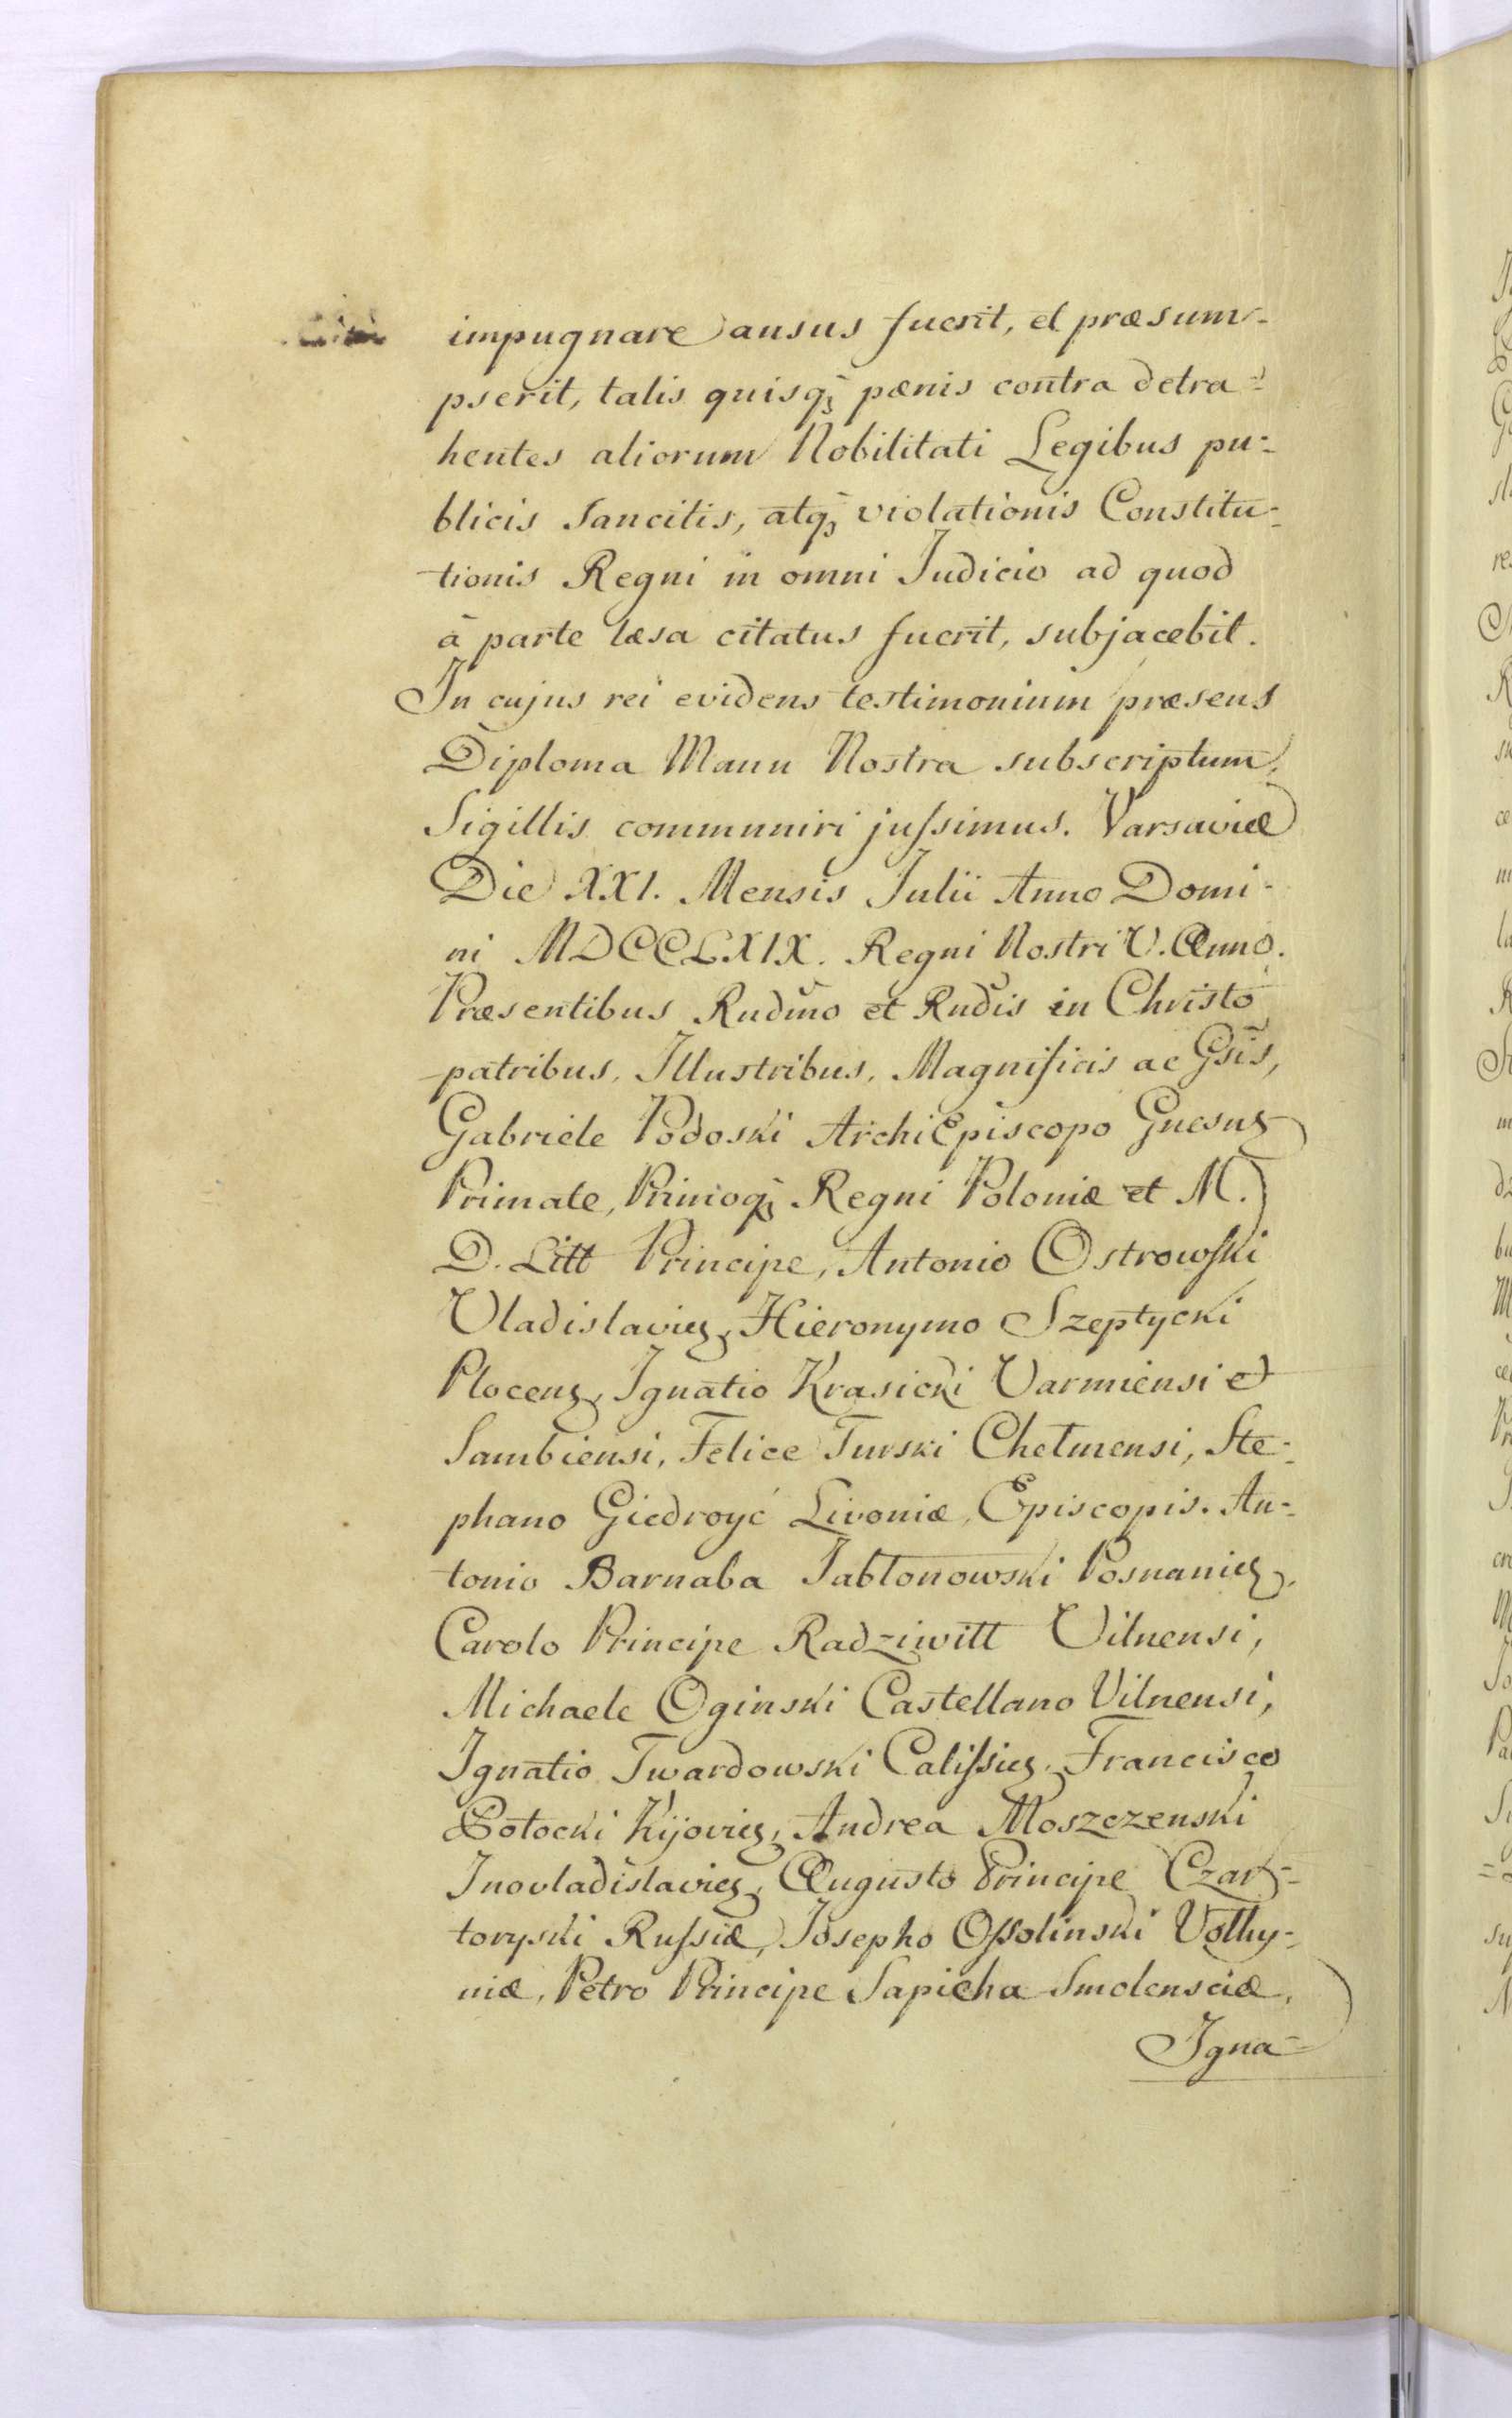 impugnare ausus fuerit, et præsum-
pserit, talis quisq₃ pænis contra detra-
hentes aliorum Nobilitati Legibus pu-
blicis sancitis, atq₃ violationis Constitu-
tionis Regni in omni Judicio ad quod
à parte læsa citatus fuerit, subjacebit.
In cujus rei evidens testimonium præsens
Diploma Manu Nostra subscriptum,
Sigillis communiri jussimus. Varsaviæ
Die XXI. Mensis Julii Anno Domi-
ni MDCCLXIX. Regni Nostri V. Anno.
Præsentibus Rudmo et Rudis in Christo
patribus, Illustribus, Magnificis ac Gsis,
Gabriele Podoski ArchiEpiscopo Gnesnȝ
Primate, Primoq₃ Regni Poloniæ et M.
D. Litt Principe, Antonio Ostrowski
Vladislavieȝ, Hieronymo Szeptycki
Plocenȝ, Ignatio Krasicki Varmiensi et
Sambiensi, Felice Turski Chełmensi, Ste-
phano Giedroyć Livoniæ, Episcopis. An-
tonio Barnaba Jabłonowski Posnanieȝ,
Carolo Principe Radziwiłł Vilnensi,
Michaele Oginski Castellano Vilnensi,
Ignatio Twardowski Calissieȝ, Francisco
Potocki Kijovieȝ, Andrea Moszczenski
Inovladislavieȝ, Augusto Principe Czar-
toryski Russiæ, Josepho Ossolinski Volhy-
niæ, Petro Principe Sapieha Smolensciæ,
Igna-